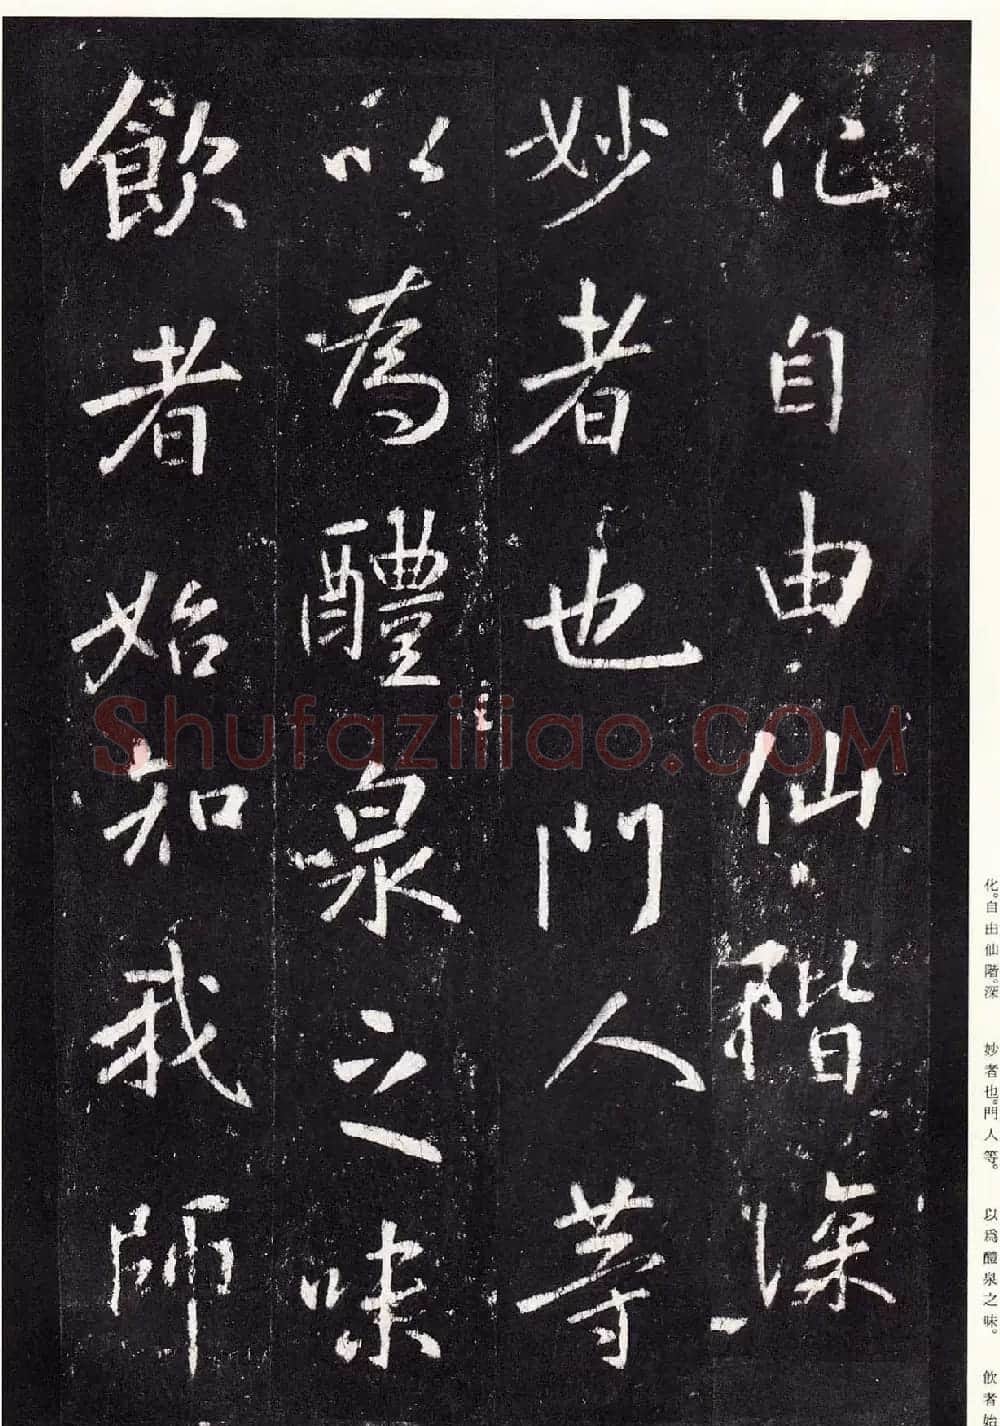 化自由仙階深
妙者也門人等
以為醴泉之味
飲者始知我師
化。自由仙階。深
妙者也。門人等。
以爲醴泉之味。
飲者始
Shufaziliao.COM